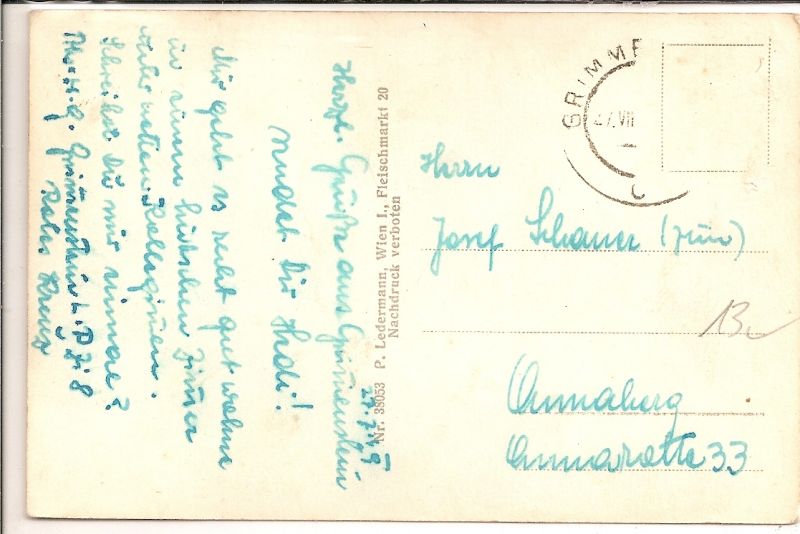 Herzl. Grüße aus Grimmenstein
sendet Dir Hedi!
27.7.49
Mir geht es recht gut wohne
in einem hübschen Zimmer
unter netten Kolleginnen.
Schreibst Du mir einmal?
Grimmenstein L. P. Zi 8
Rotes Kreuz
Nr. 38053 P. Ledermann, Wien I., Fleischmarkt 20
Nachdruck verboten
GRIMME
27.VII
Herrn
Josef Schauer (jun)
Annaberg
Annarotte 33